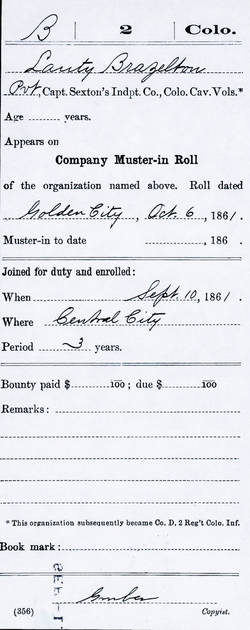 B | 2 | Colo.
Lanty Brazelton
Pvt, Capt. Sexton's Indpt. Co., Colo. Cav. Vols.*
Age ........ years.
Appears on
Company Muster-in Roll
of the organization named above. Roll dated
Golden City, Oct. 6, 1861.
Muster-in to date ............, 186 .
Joined for duty and enrolled:
When Sept. 10, 1861.
Where Central City
Period 3 years.
Bounty paid $ ........ 100; due $ ........ 100
Remarks:
* This organization subsequently became Co. D, 2 Reg't Colo. Inf.
Book mark:
(356) Copyist.